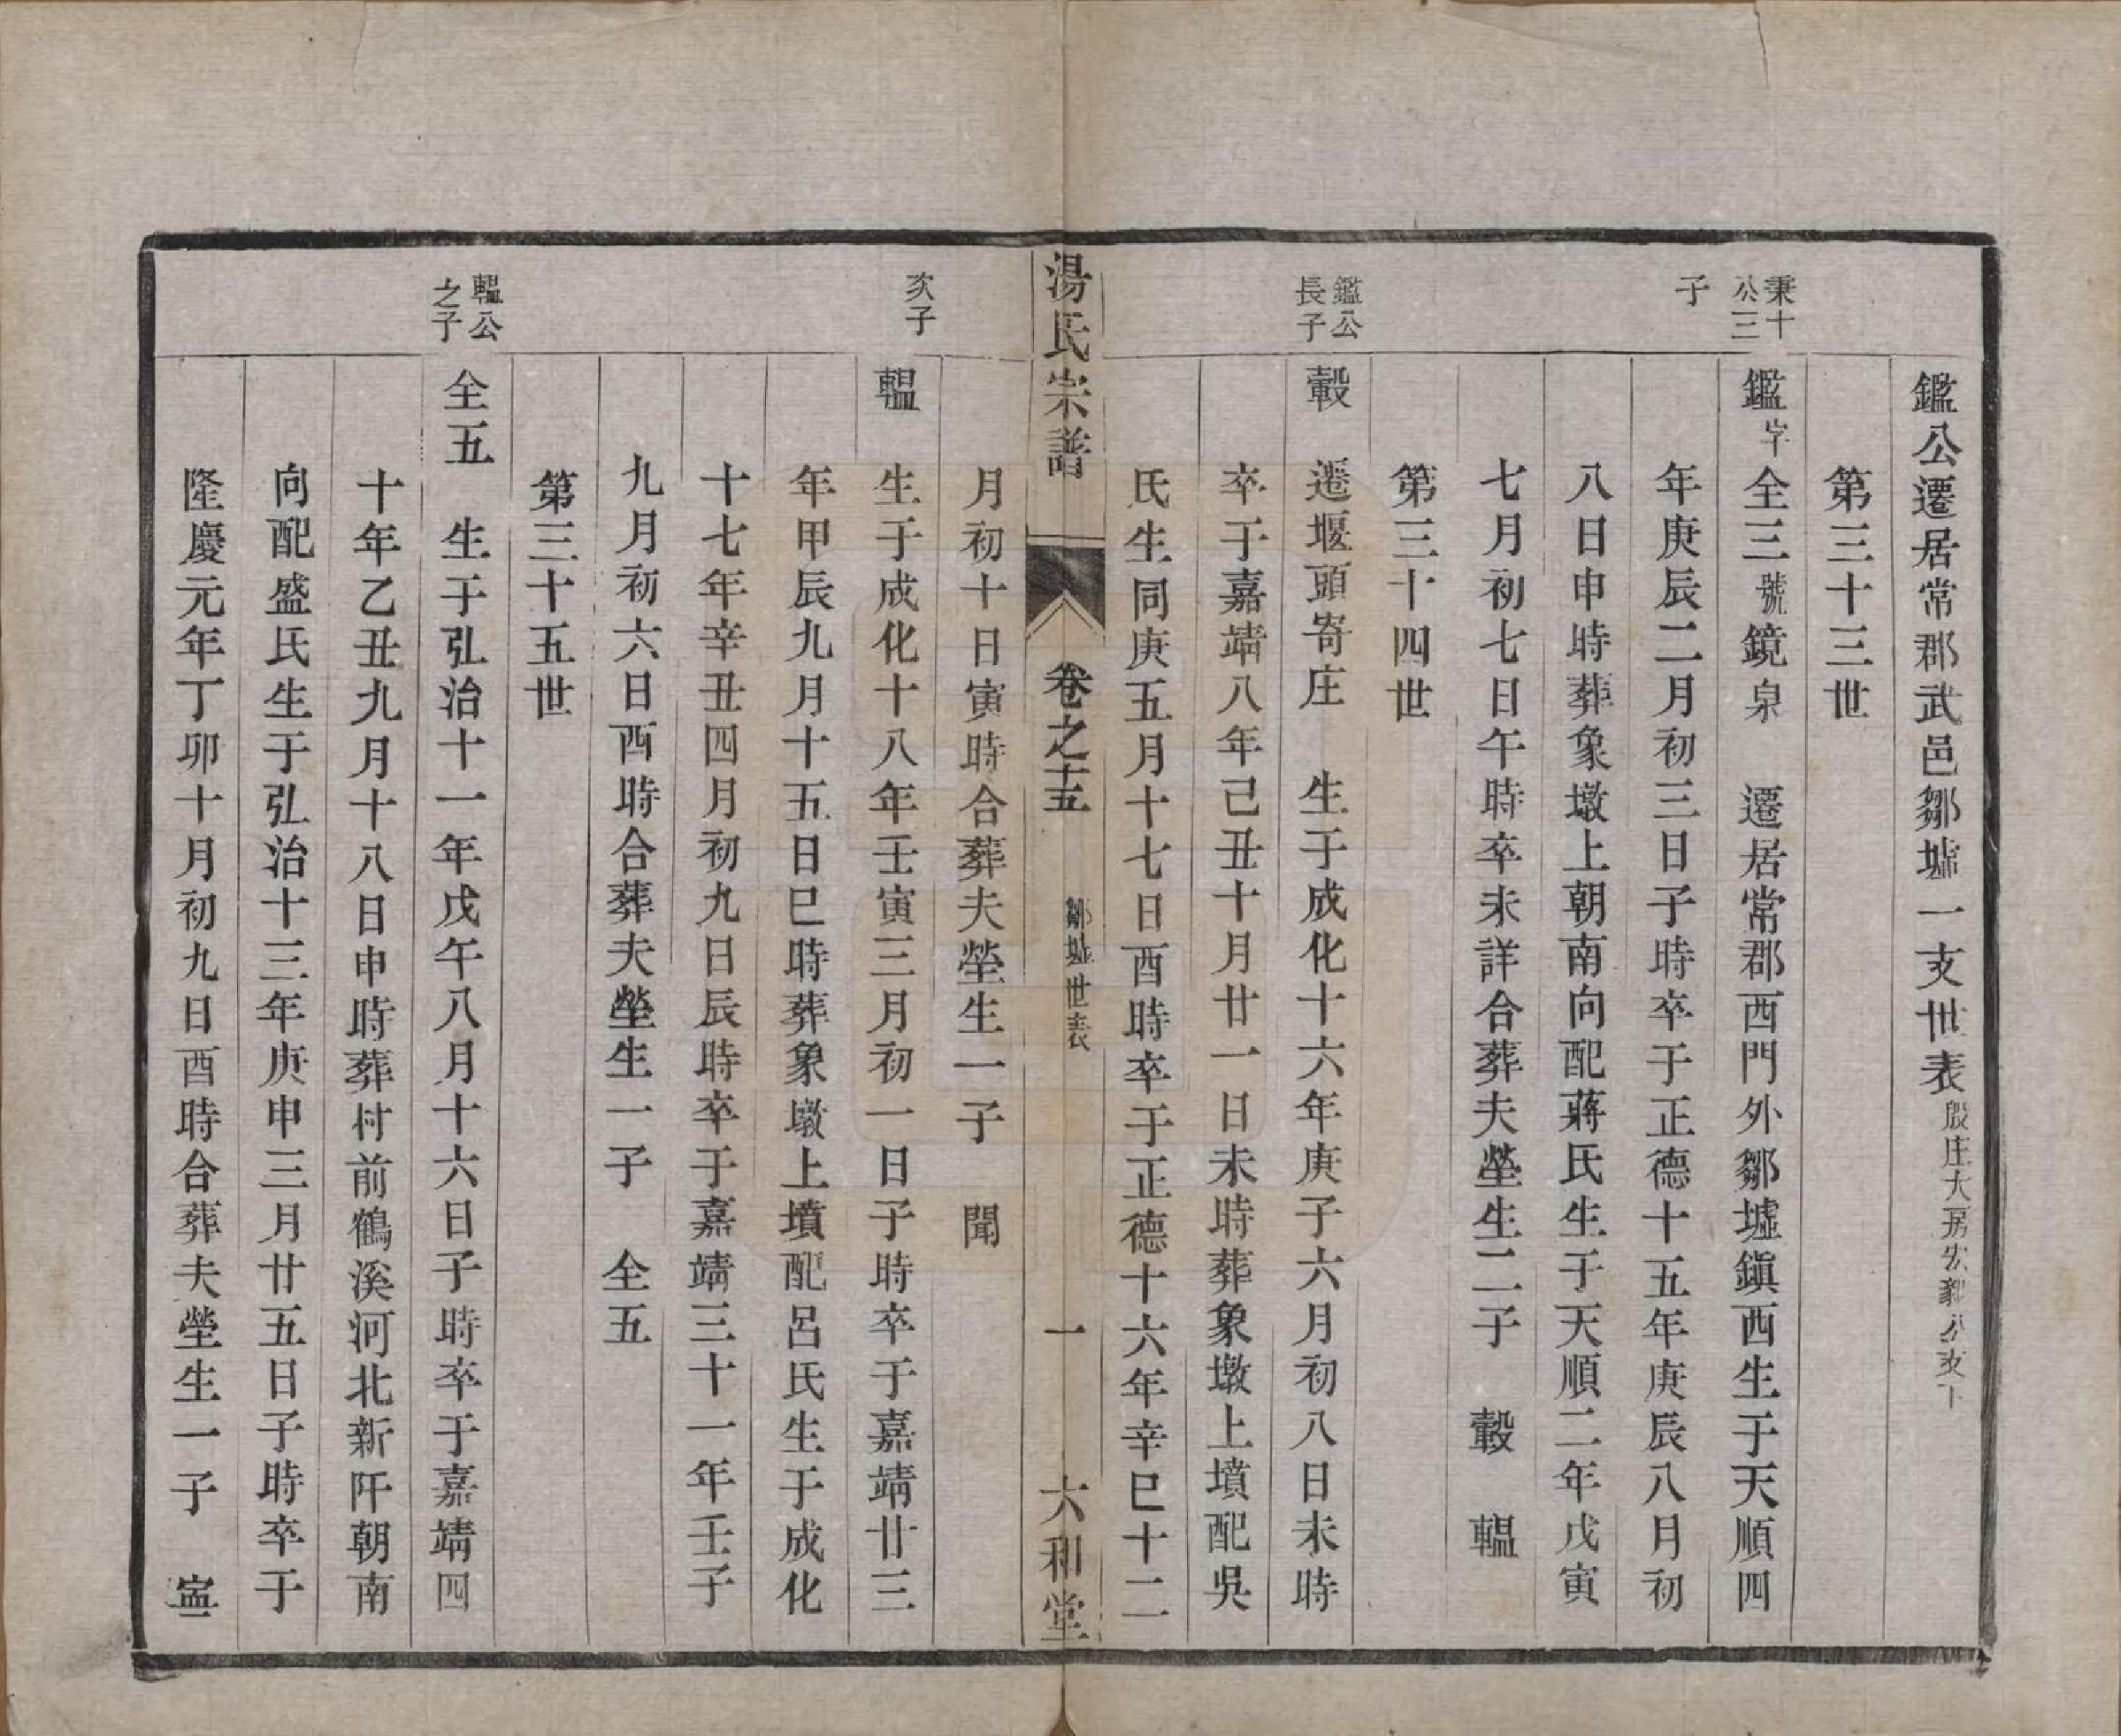 鑑公遷居常郡武邑鄒墟一支世表殷庄大房公毅公支下
第三十三世
秉十公三子
鑑字全三號鏡泉　遷居常郡西門外鄒墟鎮西生于天順四
年庚辰二月初三日子時卒于正德十五年庚辰八月初
八日申時葬象墩上朝南向配蔣氏生于天順二年戊寅
七月初七日午時卒未詳合葬夫塋生二子　轂　轀
第三十四世
鑑公長子
轂　遷堰頭寄庄　生于成化十六年庚子六月初八日未時
卒于嘉靖八年己丑十月廿一日未時葬象墩上墳配吳
氏生同庚五月十七日酉時卒于正德十六年辛巳十二
湯氏宗譜　卷之十五　鄒墟世表　一　六和堂
月初十日寅時合葬夫塋生一子　聞
次子
轀　生于成化十八年壬寅三月初一日子時卒于嘉靖廿三
年甲辰九月十五日巳時葬象墩上墳配呂氏生于成化
十七年辛丑四月初九日辰時卒于嘉靖三十一年壬子
九月初六日酉時合葬夫塋生一子　全五
第三十五世
轀公之子
全五　生于弘治十一年戊午八月十六日子時卒于嘉靖四
十年乙丑九月十八日申時葬村前鶴溪河北新阡朝南
向配盛氏生于弘治十三年庚申三月廿五日子時卒于
隆慶元年丁卯十月初九日酉時合葬夫塋生一子　寍